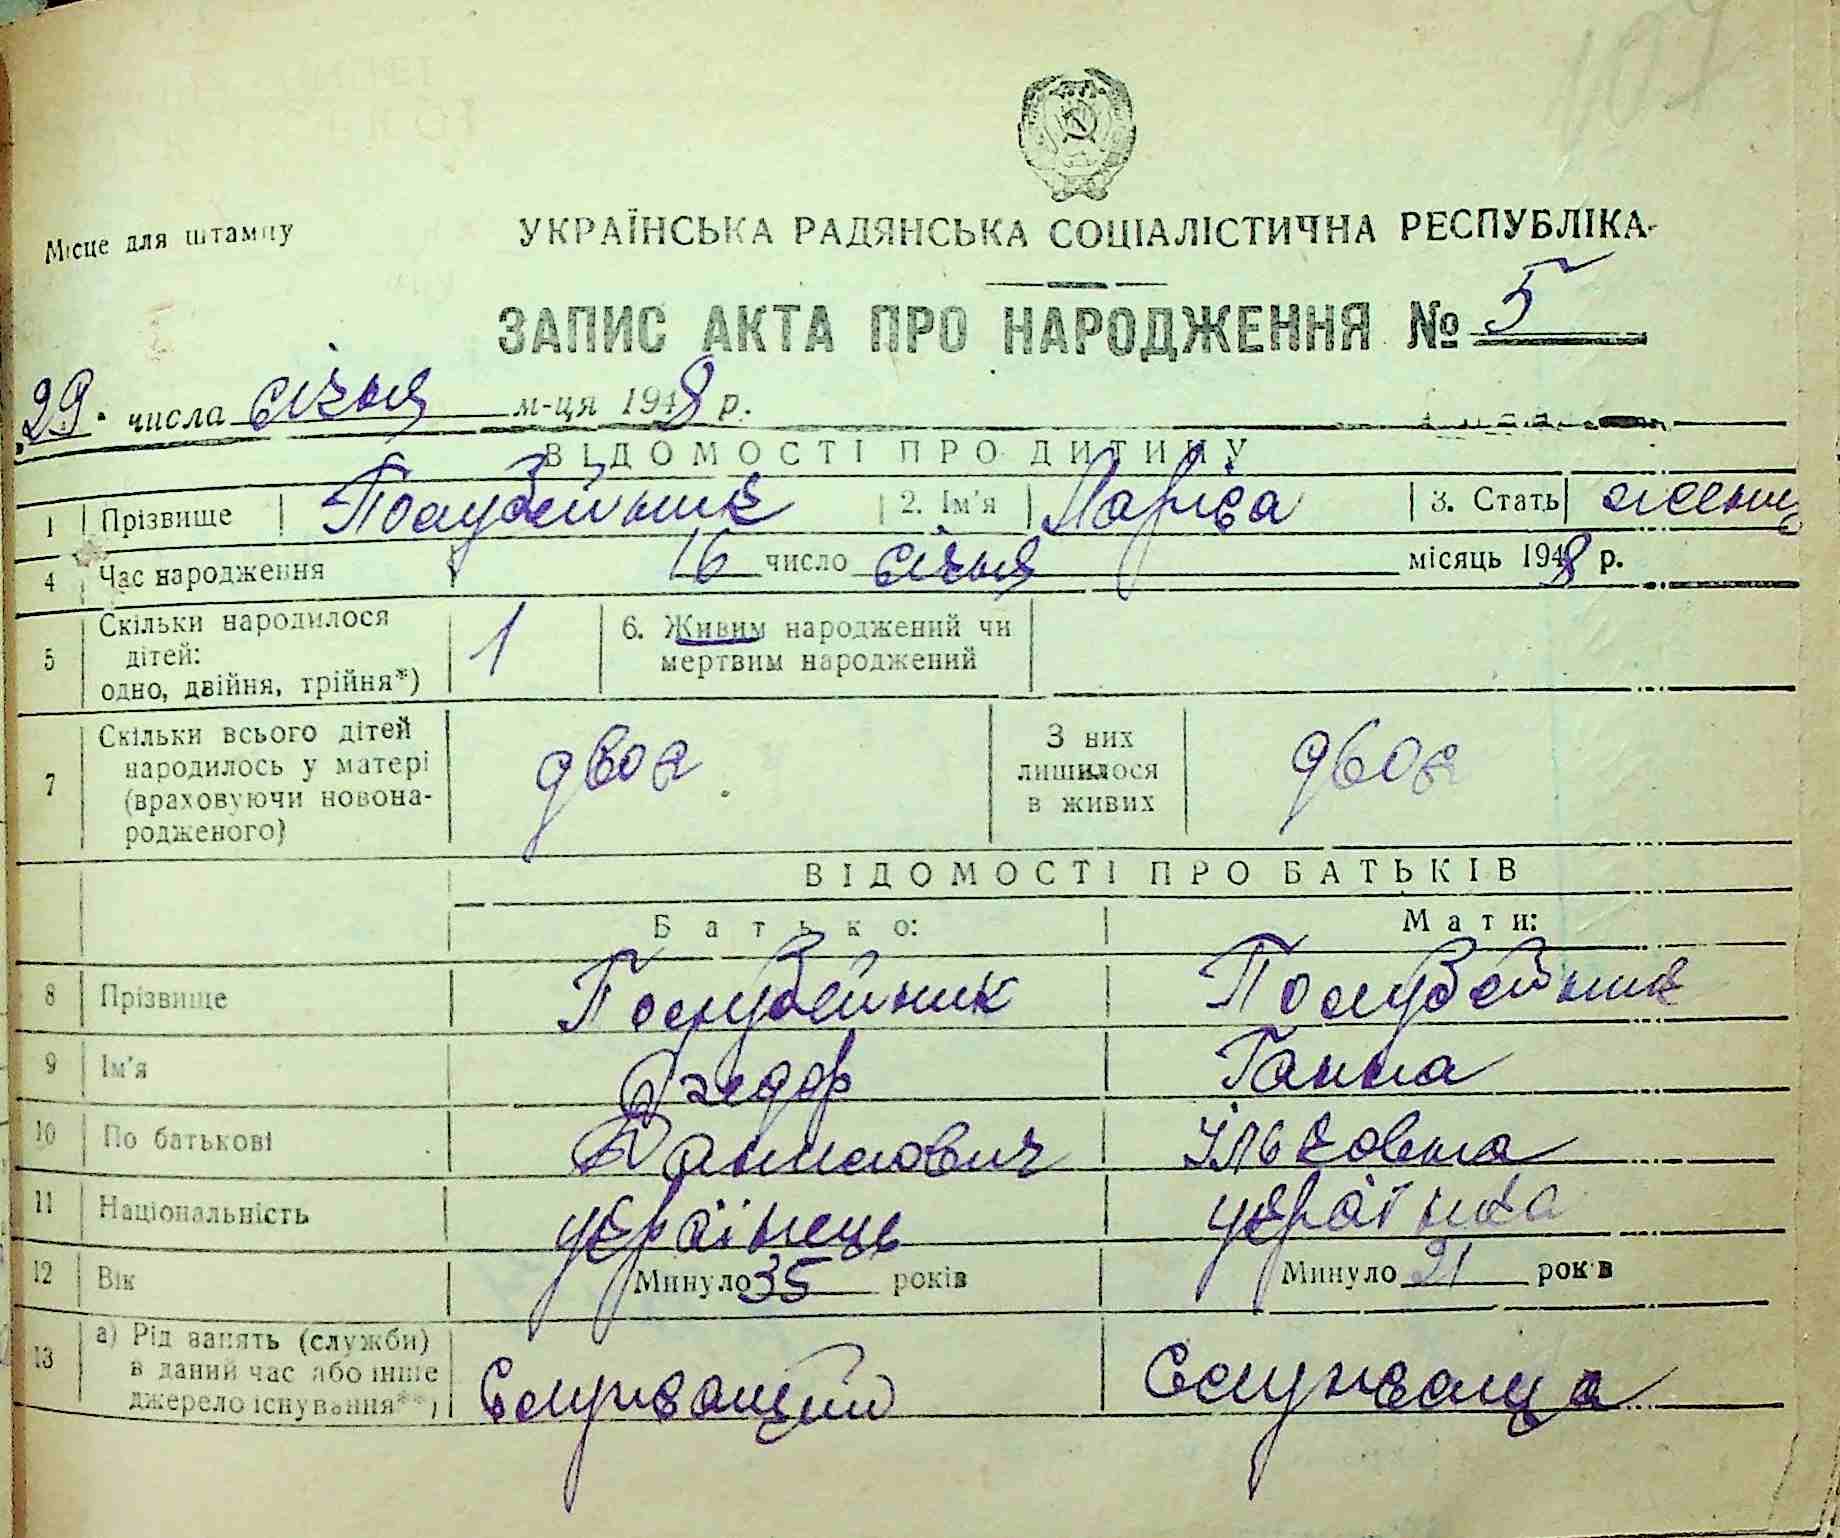 107
Місце для штампу
УКРАЇНСЬКА РАДЯНСЬКА СОЦІАЛІСТИЧНА РЕСПУБЛІКА
ЗАПИС АКТА ПРО НАРОДЖЕННЯ № 5
29. числа січня м-ця 1948 р.
ВІДОМОСТІ ПРО ДИТИНУ
1 Прізвище Полубейник 2. Ім'я Ларіса 3. Стать женщ
4 Час народження 16 число січня місяць 1948 р.
5 Скільки народилося дітей: одно, двійня, трійня*) 1 6. Живим народжений чи мертвим народжений
7 Скільки всього дітей народилось у матері (враховуючи новонародженого) двоє З них лишилося в живих двоє
ВІДОМОСТІ ПРО БАТЬКІВ
Батько: Мати:
8 Прізвище Полубейник Полубейник
9 Ім'я Федор Ганна
10 По батькові Данилович Ільковна
11 Національність українець українка
12 Вік Минуло 35 років Минуло 21 років
13 а) Рід занять (служби) в даний час або інше джерело існування**) Служащий Служаща